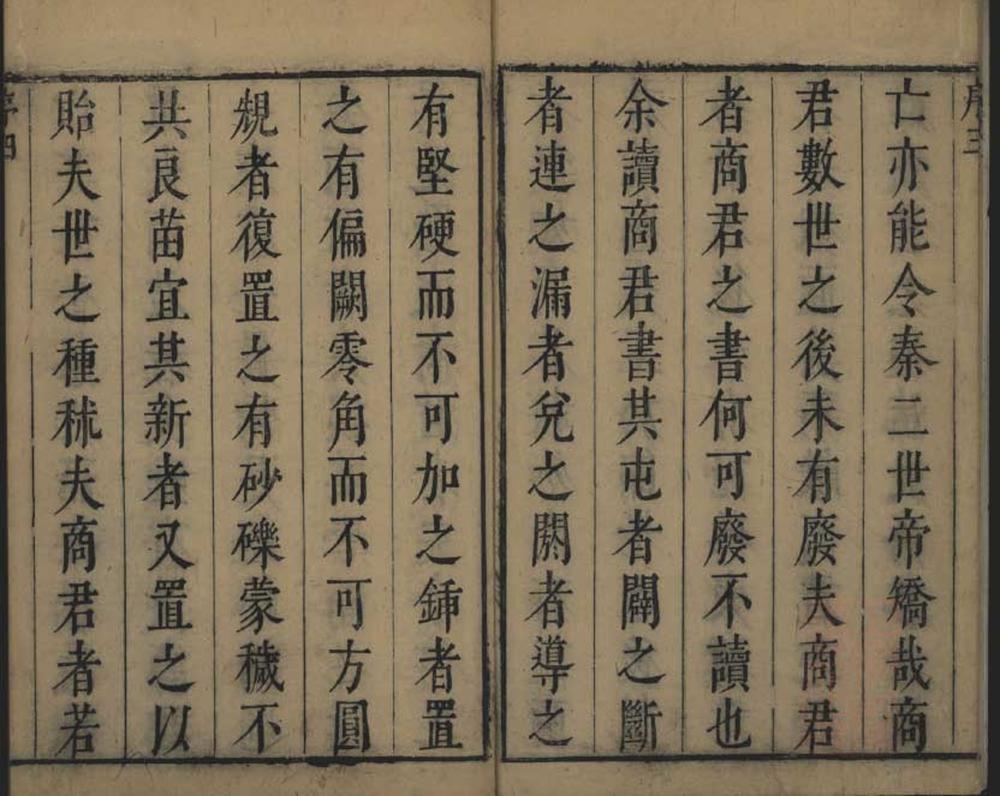 序三
亡亦能令秦二世帝矯哉商
君數世之後未有廢夫商君
者商君之書何可廢不讀也
余讀商君書其屯者闢之斷
者連之漏者兌之閼者導之
有堅硬而不可加之鍤者置
之有偏闕零角而不可方圓
覢者復置之有砂礫蒙穢不
共良苗宜其新者又置之以
貽夫世之種秫夫商君者若
序四